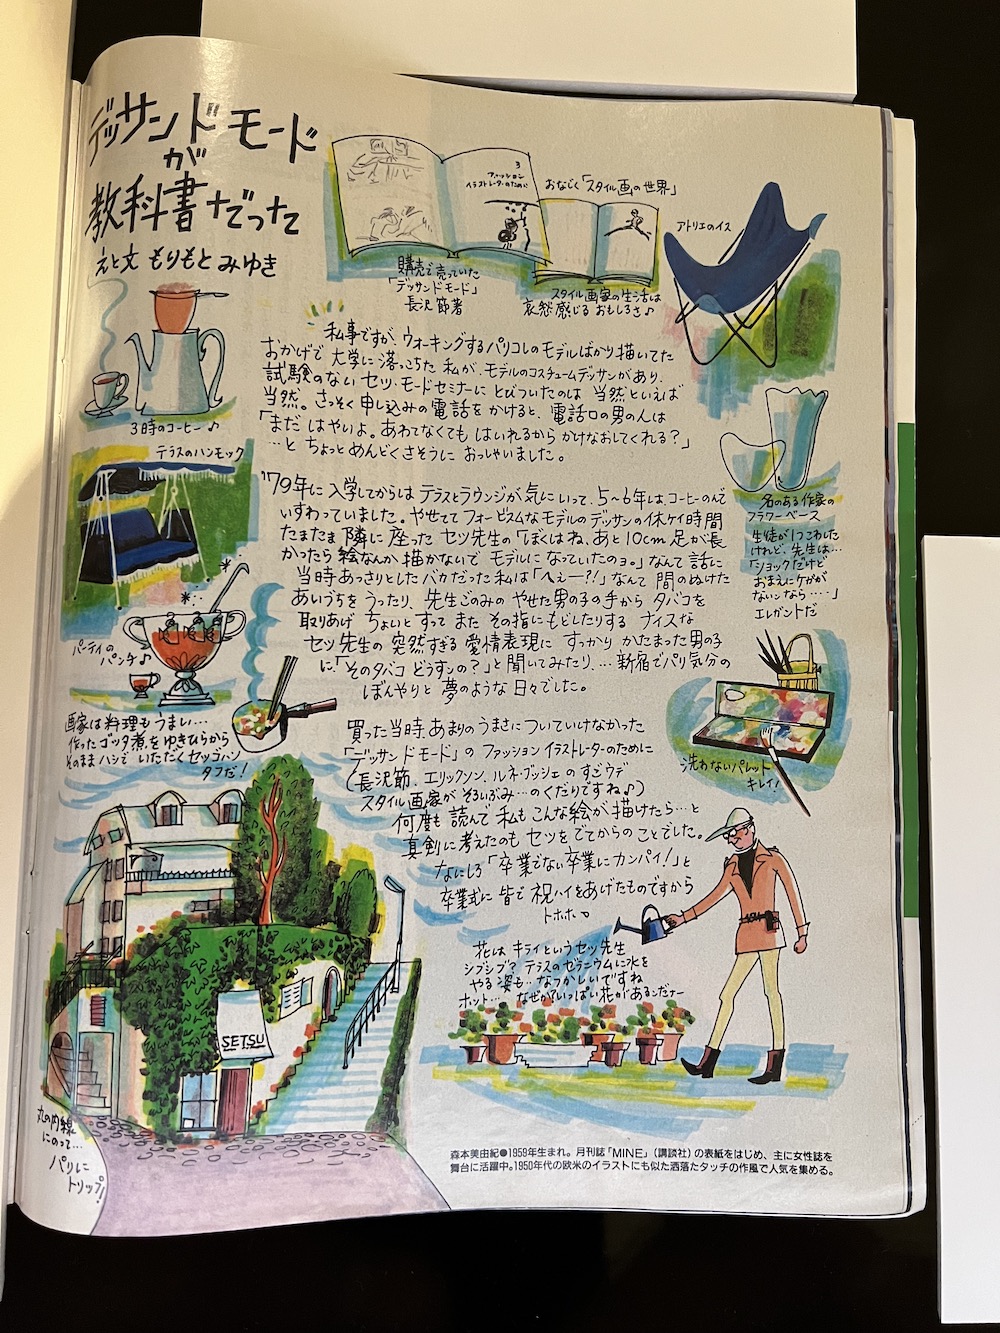 デッサンドモード
が
教科書だった
え と 文 もりもと みゆき
3
ファッション
イラストレーターのために
おなじく「スタイル画の世界」
アトリエのイス
購売で売っていた
「デッサンドモード」
長沢 節著
スタイル画家の生活は
哀愁感じる おもしろさ♪
3時のコーヒー♪
私事ですが、ウォーキングするパリコレのモデルばかり描いてた
おかげで 大学に落っこちた 私が、モデルのコスチュームデッサンがあり、
試験のない セツ・モードセミナーに とびついたのは 当然といえば
当然。さっそく 申し込みの電話を かけると、電話口の男の人は
「まだ はやいよ。あわてなくても はいれるから かけなおしてくれる?」
…と ちょっと めんどくさそうに おっしゃいました。
テラスのハンモック
名のある作家の
フラワーベース
生徒が1つこわした
けれど、先生は…
「ショックだけど
おまえにケガが
ないンなら……」
エレガントだ
'79年に 入学してからは テラスとラウンジが 気にいって、5〜6年は コーヒーのんで
いすわっていました。やせてて フォービズムなモデルのデッサンの休ケイ時間
たまたま 隣に 座った セツ先生の「ぼくはね、あと10cm 足が長
かったら 絵なんか 描かないで モデルに なっていたのョ。」なんて 話に
当時 あっさりとした バカだった 私は「へぇー?!」なんて 間のぬけた
あいづちを うったり、先生ごのみの やせた男の子の手から タバコを
取りあげ ちょいと すって また その指に もどしたりする ナイスな
セツ先生の 突然すぎる 愛情表現に すっかり かたまった 男の子
に「そのタバコ どうすンの?」と 聞いてみたり、…新宿でパリ気分の
ぼんやりと 夢のような 日々でした。
パーティの
パンチ♪
画家は料理もうまい…
作ったゴッタ煮を ゆきひらから
そのまま ハシで いただく セツゴハン
タフだ!
洗わないパレット
キレイ!
買った当時、あまりの うまさに ついていけなかった
「デッサンドモード」の ファッションイラストレーターのために
(長沢節、エリックソン、ルネ・ブッシェ の すごウデ
スタイル画家が そろいぶみ…の くだりですね♪)
何度も 読んで 私も こんな絵が 描けたら…と
真剣に考えたのも セツを でてからの ことでした。
なにしろ「卒業でない卒業にカンパイ!」と
卒業式に 皆で 祝ハイを あげたものですから
トホホ…
花は キライというセツ先生
シブシブ? テラスのゼラニウムに水を
やる姿も…なつかしいですね
ホント…なぜか?いっぱい花があるンだナー
SETSU
丸の内線
にのって…
パリに
トリップ!
森本美由紀●1959年生まれ。月刊誌「MINE」(講談社)の表紙をはじめ、主に女性誌を
舞台に活躍中。1950年代の欧米のイラストにも似た洒落たタッチの作風で人気を集める。